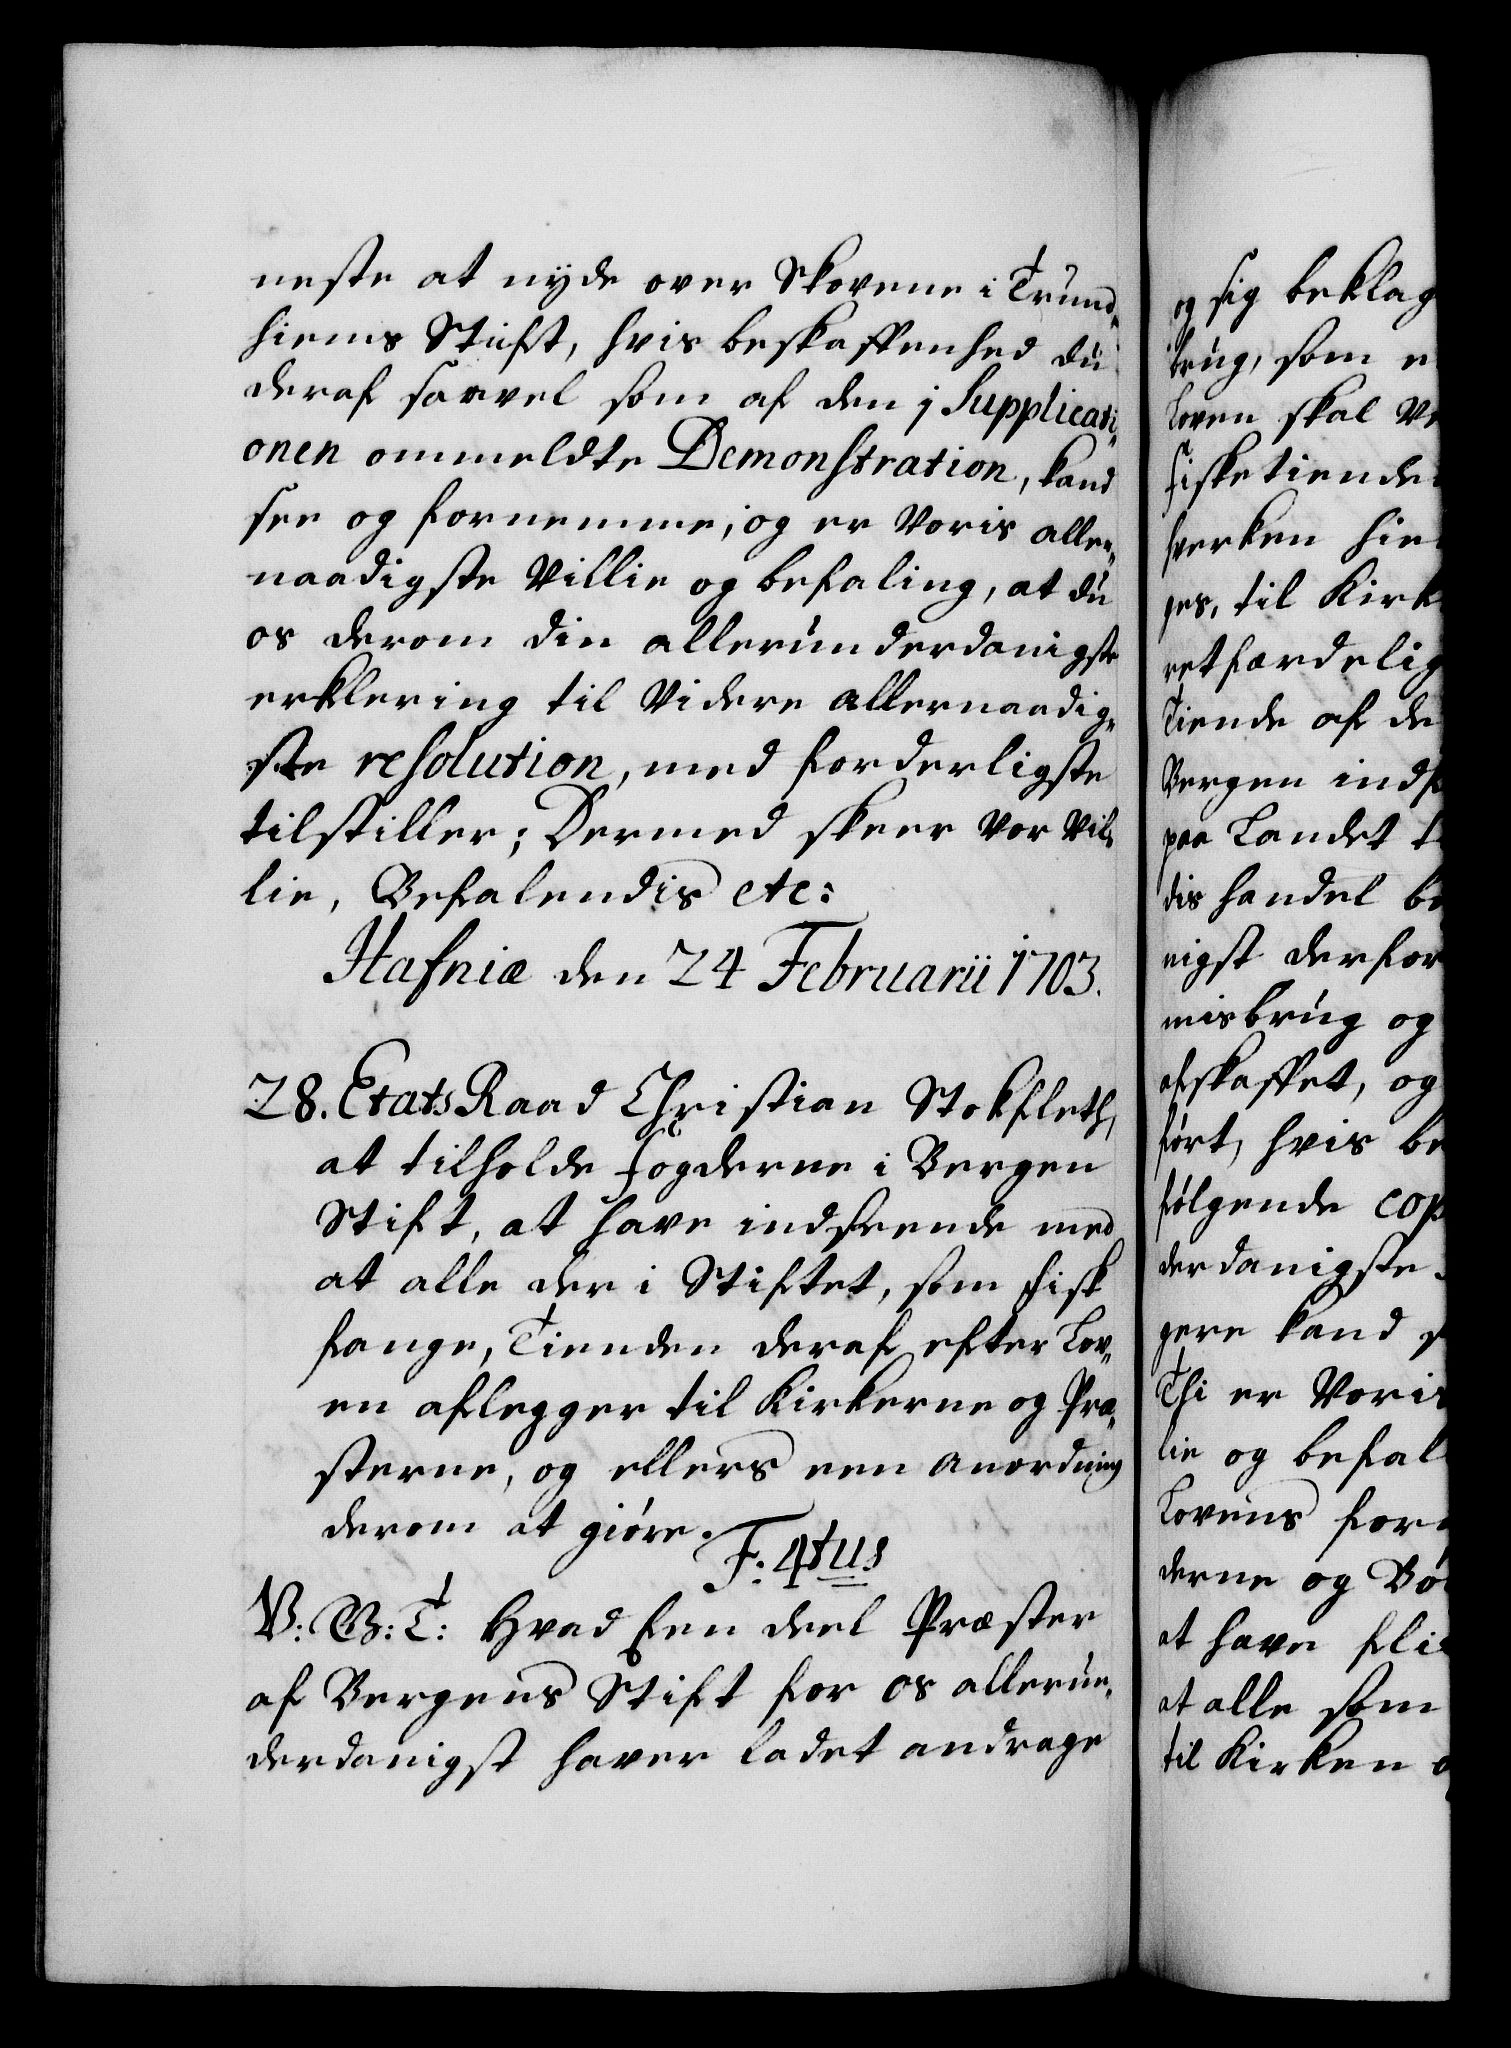 neste at nyde over Skovene i Trund-
hiems Stift, hvis beskaffenhed du
deraf saavel som af den j Supplicati-
onen ommeldte Demonstration, kand
see og fornemme; og er Voris aller-
naadigste Villie og befaling, at du
os derom din allerunderdanigste
erklering til Videre allernaadig-
ste resolution, med forderligste
tilstiller; Dermed skeer Vor Vil-
lie, Befalendis etc:
Hafniæ den 24 Februarii 1703.
28. Etats Raad Christian Stokfleth,
at tilholde fogderne i Bergen
Stift, at have indseende med
at alle der i Stiftet, som fisk
fange, Tienden deraf efter Lov-
en aflegger til Kirkerne og Præ-
sterne, og ellers een anordning
derom at giøre.
F: 4tus
V: G: T: Hvad Een deel Præster
af Bergens Stift for os allerun-
derdanigst haver ladet andrage
og sig beklag
brug, som e
Loven skal Ve
fisketiende
hverken hie
ges, til Kirk
retfærdelig
Tiende af de
Bergen indf
paa Landet t
dis handel be
nigst derfor
misbrug og
afskaffet, og
ført, hvis be
følgende cop
derdanigste
gere kand s
Thi er Voris
lie og befal
Lovens for
derne og Bø
at have fli
at alle som
til Kirken o